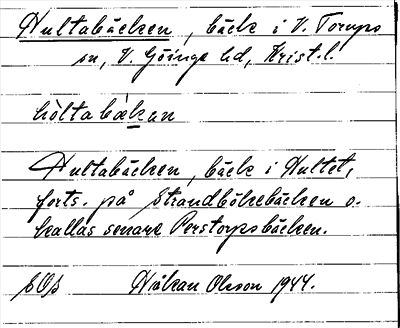 Hultabäcken, bäck i V. Torups
sn, V. Göinge hd, Krist. l.
hòltabækan
Hultabäcken, bäck i Hultet,
forts. på Strandbölsebäcken o.
kallas senare Perstorpsbäcken.
Håkan Olsson 1944.